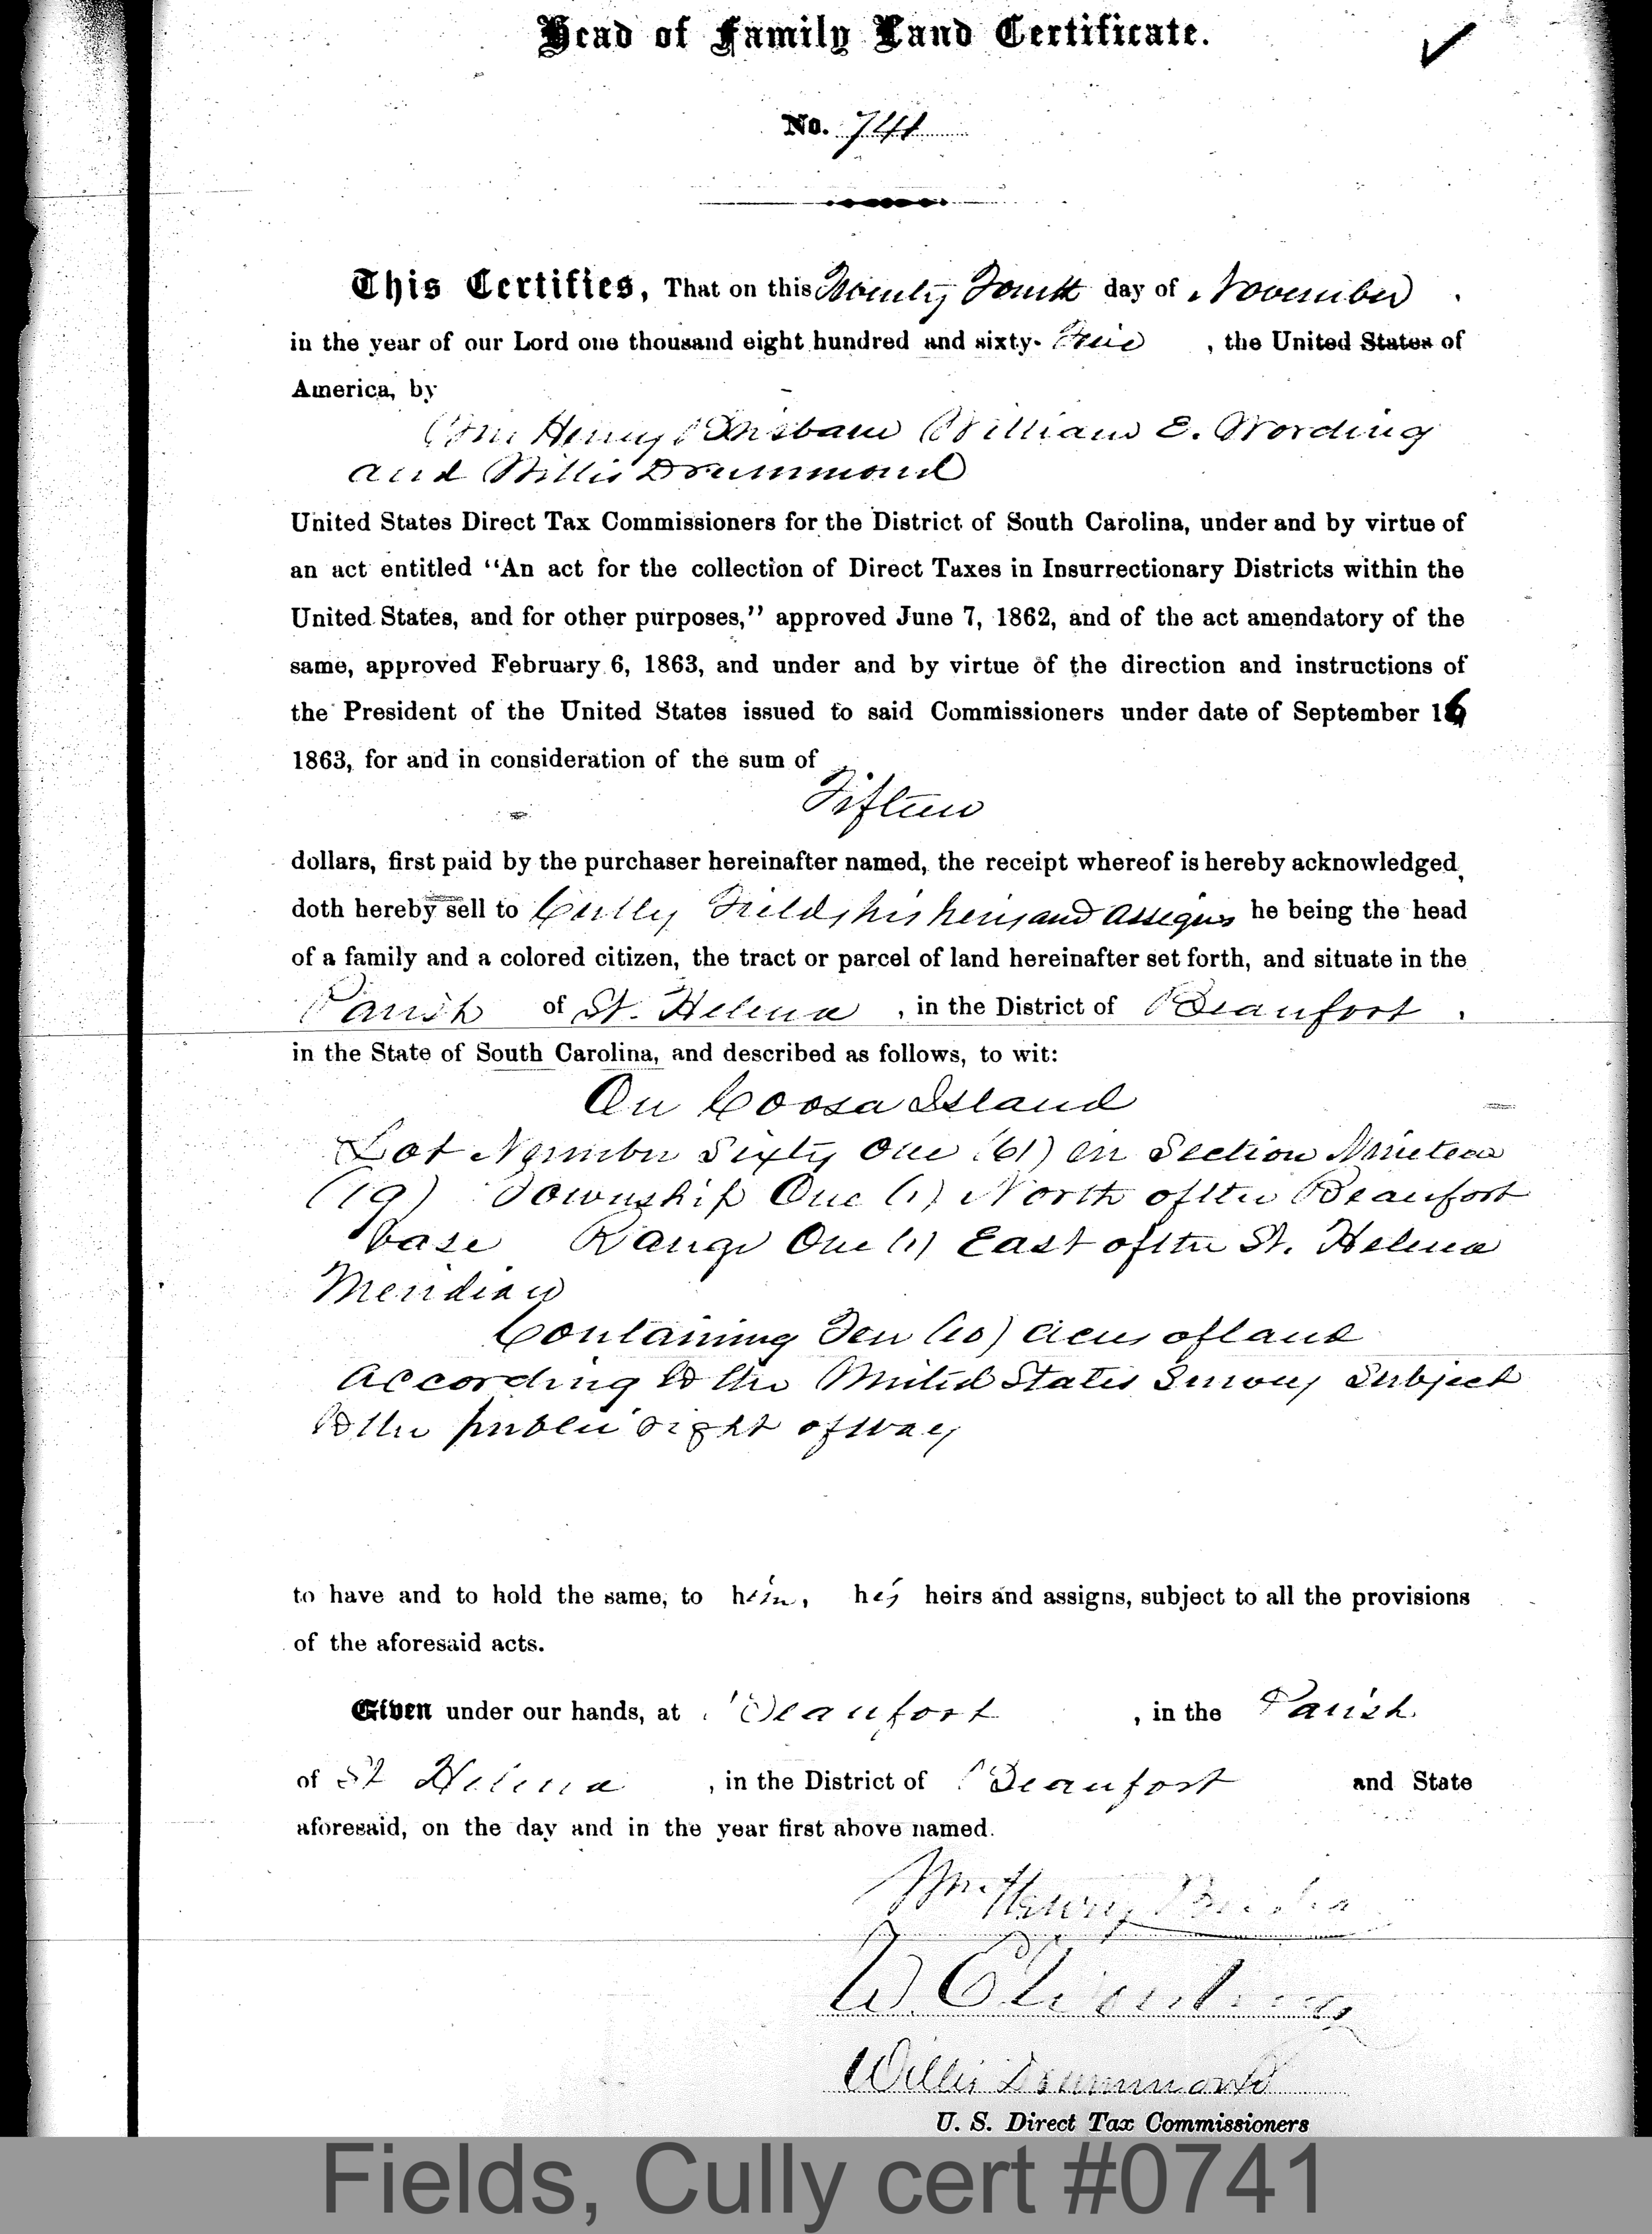 Head of Family Land Certificate.
No. 741
This Certifies, That on this Twenty Fourth day of November
in the year of our Lord one thousand eight hundred and sixty- Five , the United States of
America, by
Wm Henry Brisbane William E. Wording
and Willis Drummond
United States Direct Tax Commissioners for the District of South Carolina, under and by virtue of
an act entitled "An act for the collection of Direct Taxes in Insurrectionary Districts within the
United States, and for other purposes," approved June 7, 1862, and of the act amendatory of the
same, approved February 6, 1863, and under and by virtue of the direction and instructions of
the President of the United States issued to said Commissioners under date of September 16
1863, for and in consideration of the sum of
Fifteen
dollars, first paid by the purchaser hereinafter named, the receipt whereof is hereby acknowledged,
doth hereby sell to Cully Fields his heirs and assigns he being the head
of a family and a colored citizen, the tract or parcel of land hereinafter set forth, and situate in the
Parish of St. Helena , in the District of Beaufort .
in the State of South Carolina, and described as follows, to wit:
On Coosa Island
Lot Number Sixty One (61) in Section Nineteen
(19) Township One (1) North of the Beaufort
base Range One (1) East of the St. Helena
Meridian
Containing Ten (10) acres of land
According to the United States Survey Subject
to the public right of way
to have and to hold the same, to him, his heirs and assigns, subject to all the provisions
of the aforesaid acts.
Given under our hands, at Beaufort , in the Parish
of St Helena , in the District of Beaufort and State
aforesaid, on the day and in the year first above named.
Wm. Henry Brisbane
W. E. Wording
Willis Drummond
U. S. Direct Tax Commissioners
Fields, Cully cert #0741